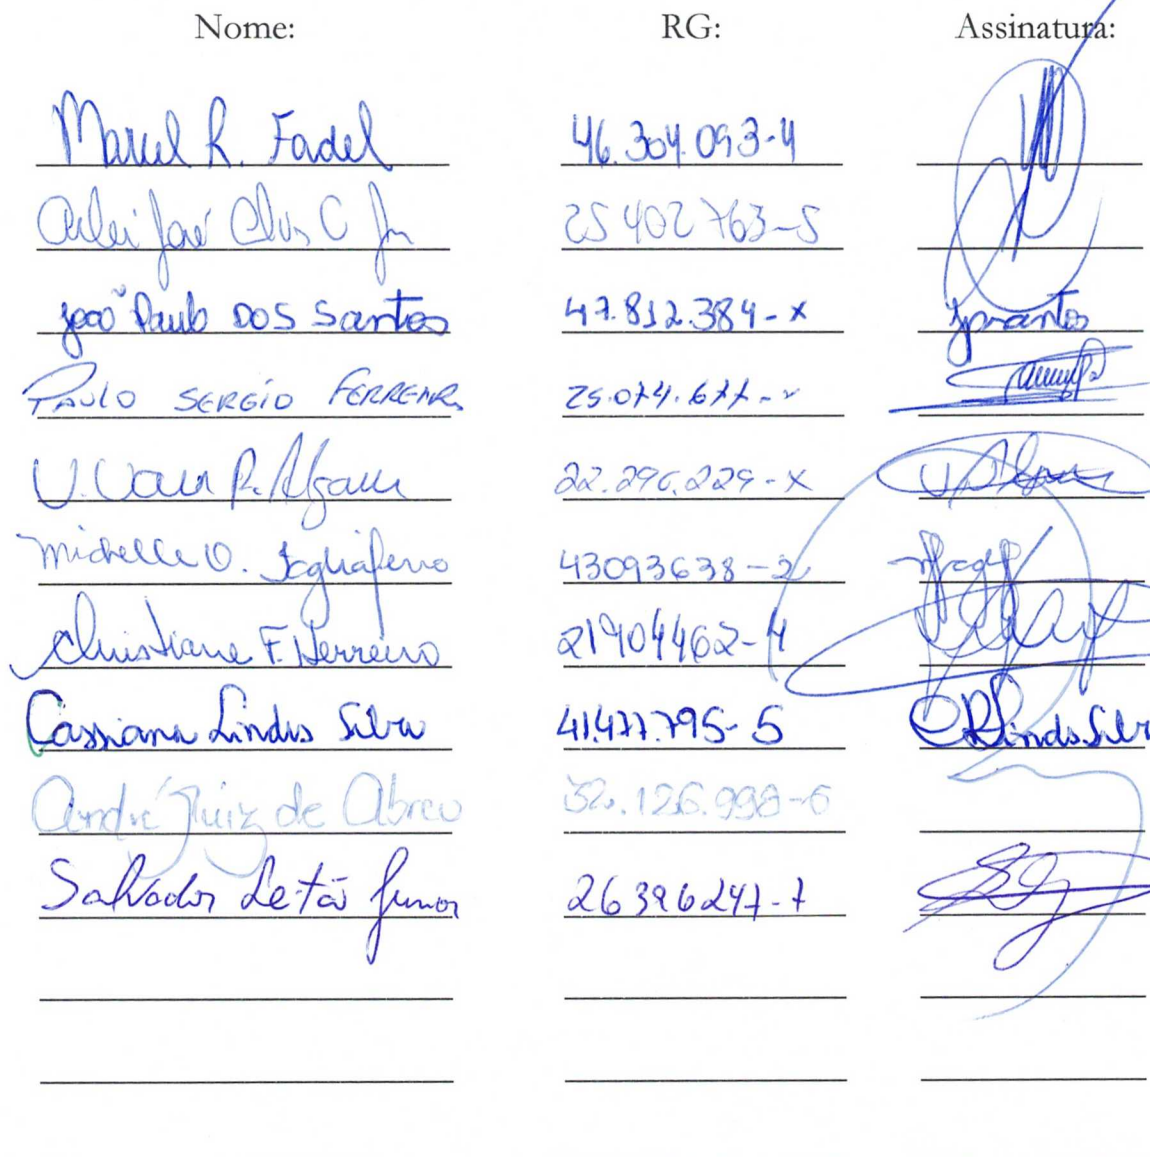 Nome: RG: Assinatura:
Marcel R. Fadel 46.304.093-4
José C Jr 25 402 763-5
João Paulo DOS Santos 47.812.384-x jpsantos
PAULO SERGIO FERREIRA 25.074.677-
V. R. 22.296.229-X
Michelle O. Tagliaferro 43093638-2
Christiane F. Ferreira 21904462-4
Cassiana Lindis Silva 41.477.795-5
André Luiz de Abreu 32.126.998-6
Salvador Leitão Junior 26396247-7